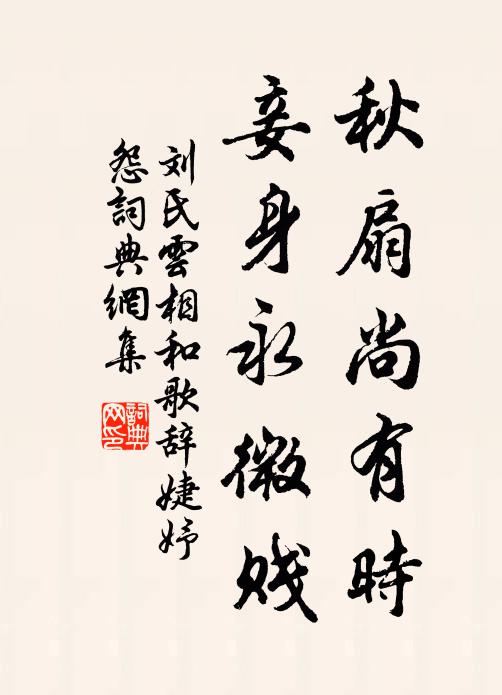 秋扇尚有時
妾身永微賤
刘氏雲相和歌辞婕妤
怨詞典網集
詞典
网印